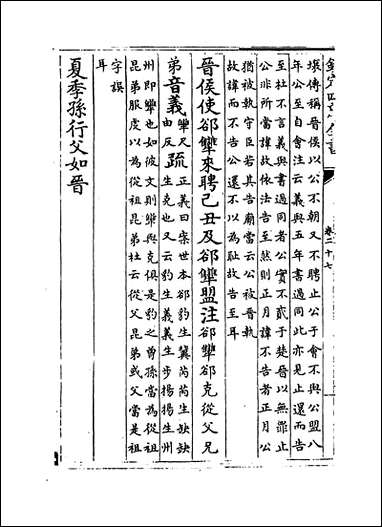 欽定四庫全書
卷二十七
埃傳稱晉侯以公不朝又不聘止公于會不與公盟八
年公至自會注云義與五年書過同此亦見止還而告
至杜不言義與書過同者公實不貳于楚晉以無罪止
公非所當諱故依法告至然則正月諱不告者正月公
猶被執守臣若其告廟當云公被晉執
故諱而不告公還不以為恥故告至耳
晉侯使郤犨來聘己丑及郤犨盟注郤犨郤克從父兄
弟音義犨尺由反疏正義曰案世本郤豹生冀芮芮生缺缺
生克也又云豹生義義生步揚揚生州
州即犨也如彼文則犨與克俱是豹之曾孫當為從祖
昆弟服虔以為從祖昆弟杜云從父昆弟或父當是祖
字誤
耳
夏季孫行父如晉